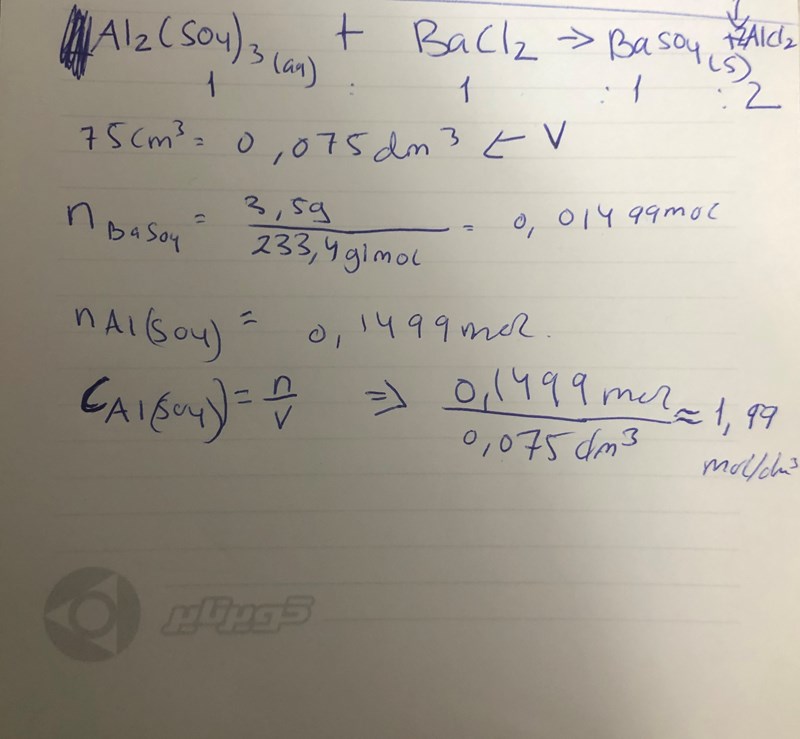 Al2(SO4)3(aq) + BaCl2 → BaSO4(s) + 2AlCl2
1 : 1 : 1 : 2
75cm³ = 0,075dm³ ← V
nBaSO4 = 3,5g / 233,4g/mol = 0,01499mol
nAl(SO4) = 0,1499mol.
CAl(SO4) = n/V ⇒ 0,1499mol / 0,075dm³ ≈ 1,99 mol/dm³
کویرتایر